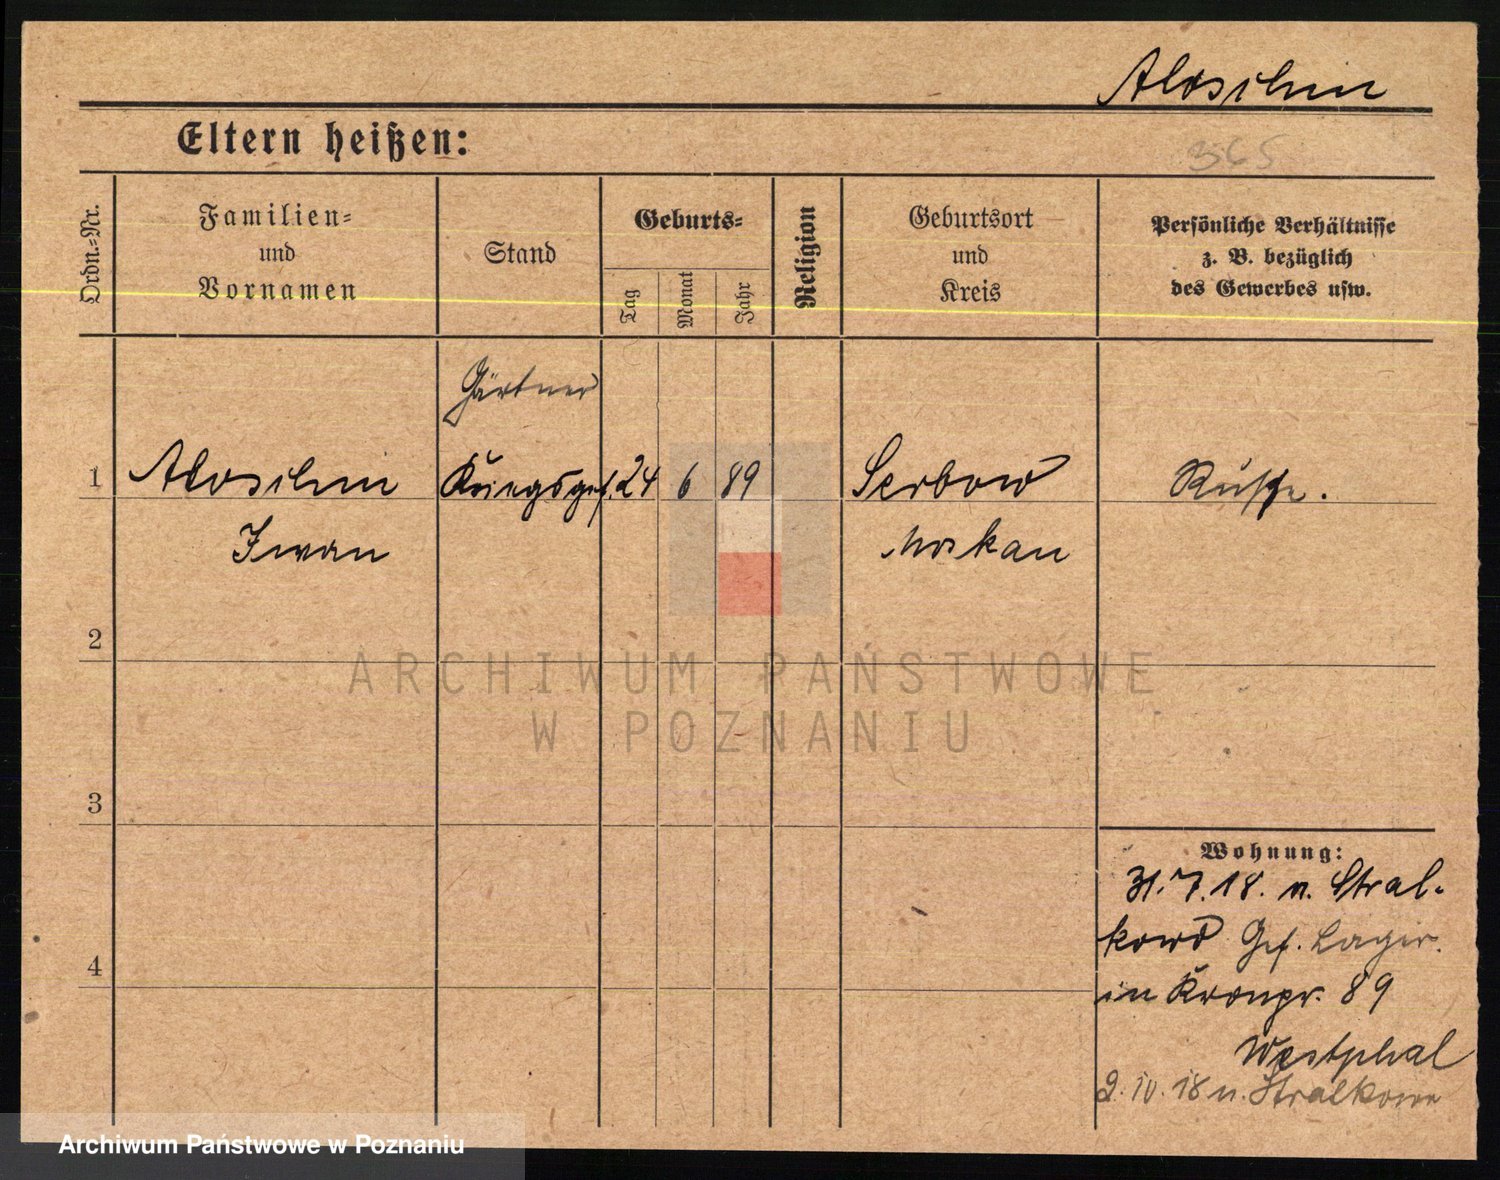 Aloschin
Eltern heißen:
365
Ordn.-Nr.
Familien-
und
Vornamen
Stand
Geburts-
Tag
Monat
Jahr
Religion
Geburtsort
und
Kreis
Persönliche Verhältnisse
z. B. bezüglich
des Gewerbes usw.
Gärtner
1 Aloschin Kriegsgef. 24 6 89 Serbow Russe.
Iwan Moskau
2
ARCHIWUM PAŃSTWOWE
W POZNANIU
3
Wohnung:
31.7.18. n. Stral-
kowo Gef. Lager.
4
in Kronpr. 89
Westphal
2.10.18 n. Stralkowo
Archiwum Państwowe w Poznaniu